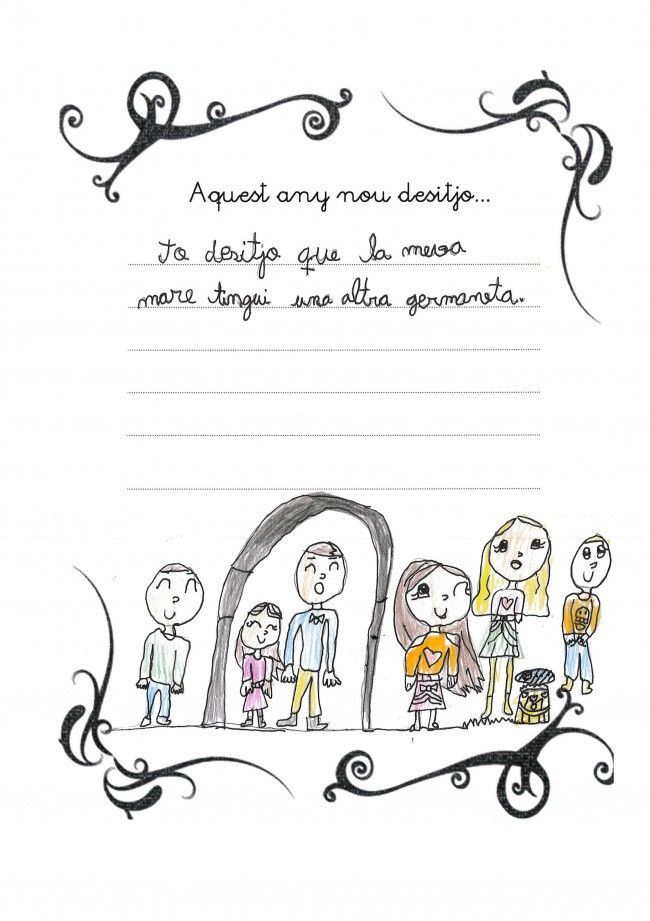 Aquest any nou desitjo...
Jo desitjo que la meva
mare tingui una altra germaneta.